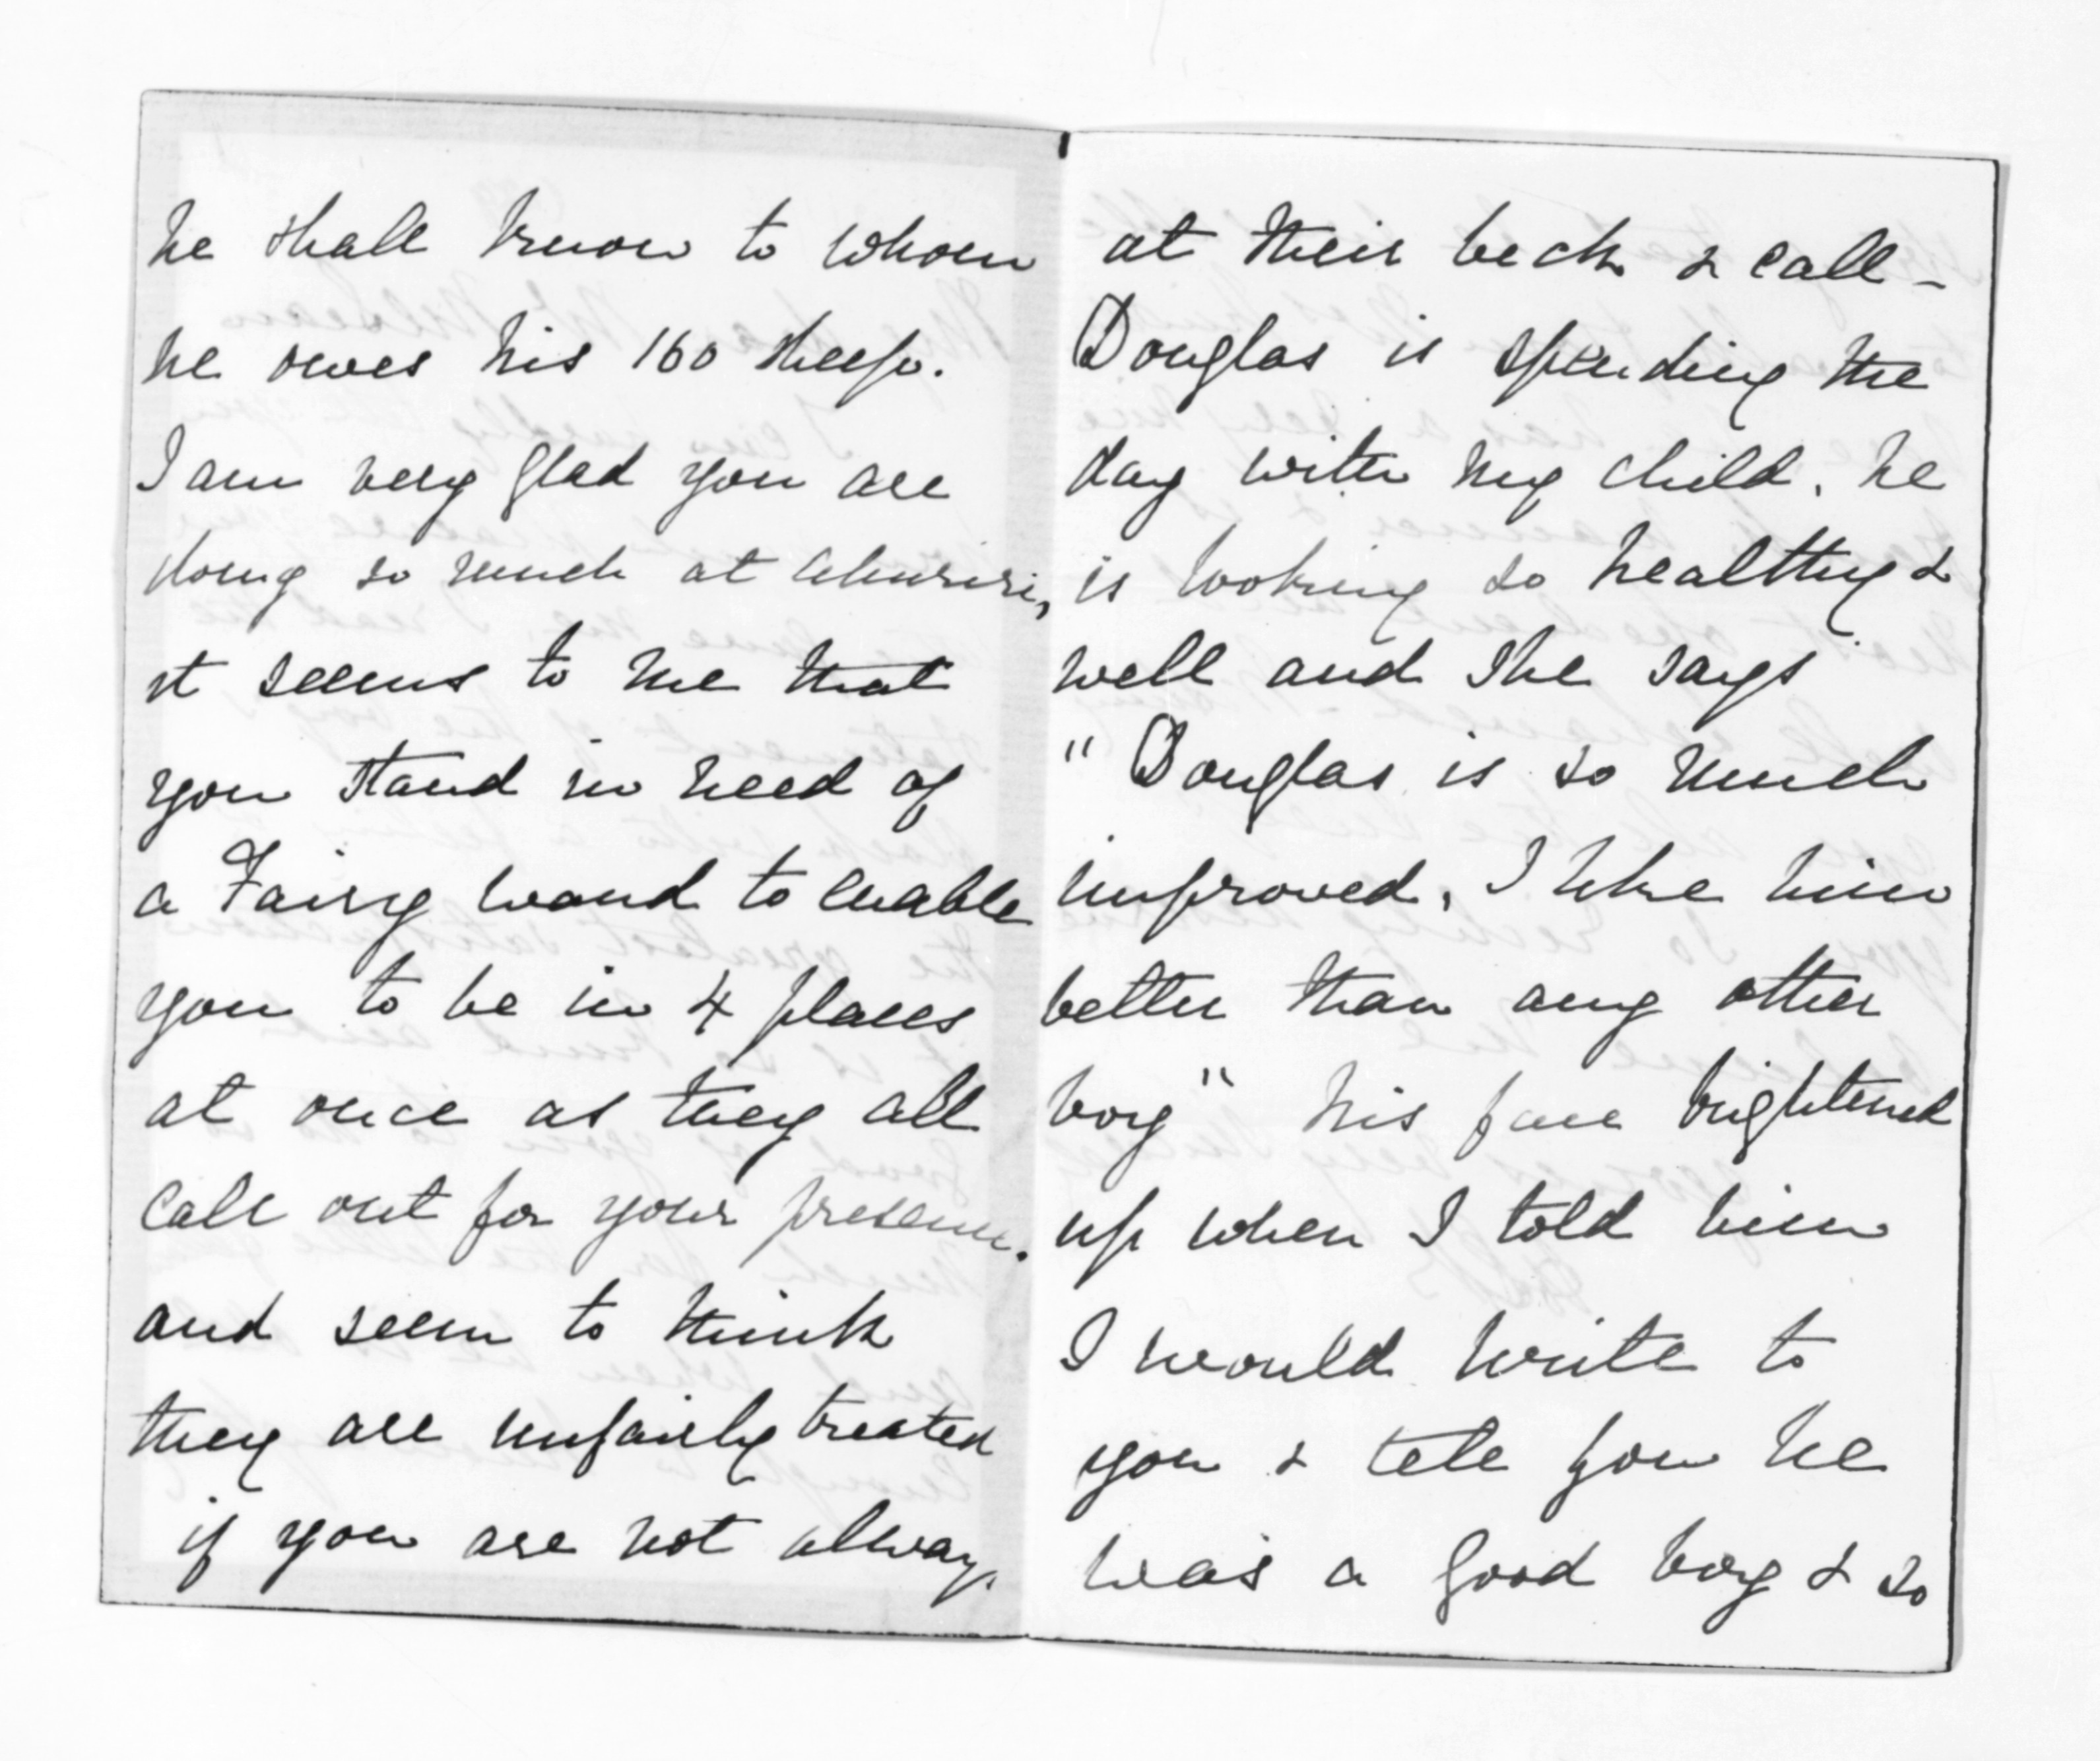 he shall know to whom
he owes his 160 sheep.
I am very glad you are
doing so much at Ahuriri,
it seems to me that
you stand in need of
a Fairy wand to enable
you to be in 4 places
at once as they all
call out for your presence.
and seem to think
they are unfairly treated
if you are not always
at their beck & call -
Douglas is spending the
day with my child. he
is looking so healthy &
well and she says
"Douglas is so much
improved, I like him
better than any other
boy" his face brightened
up when I told him
I would write to
you & tell you he
was a good boy & so